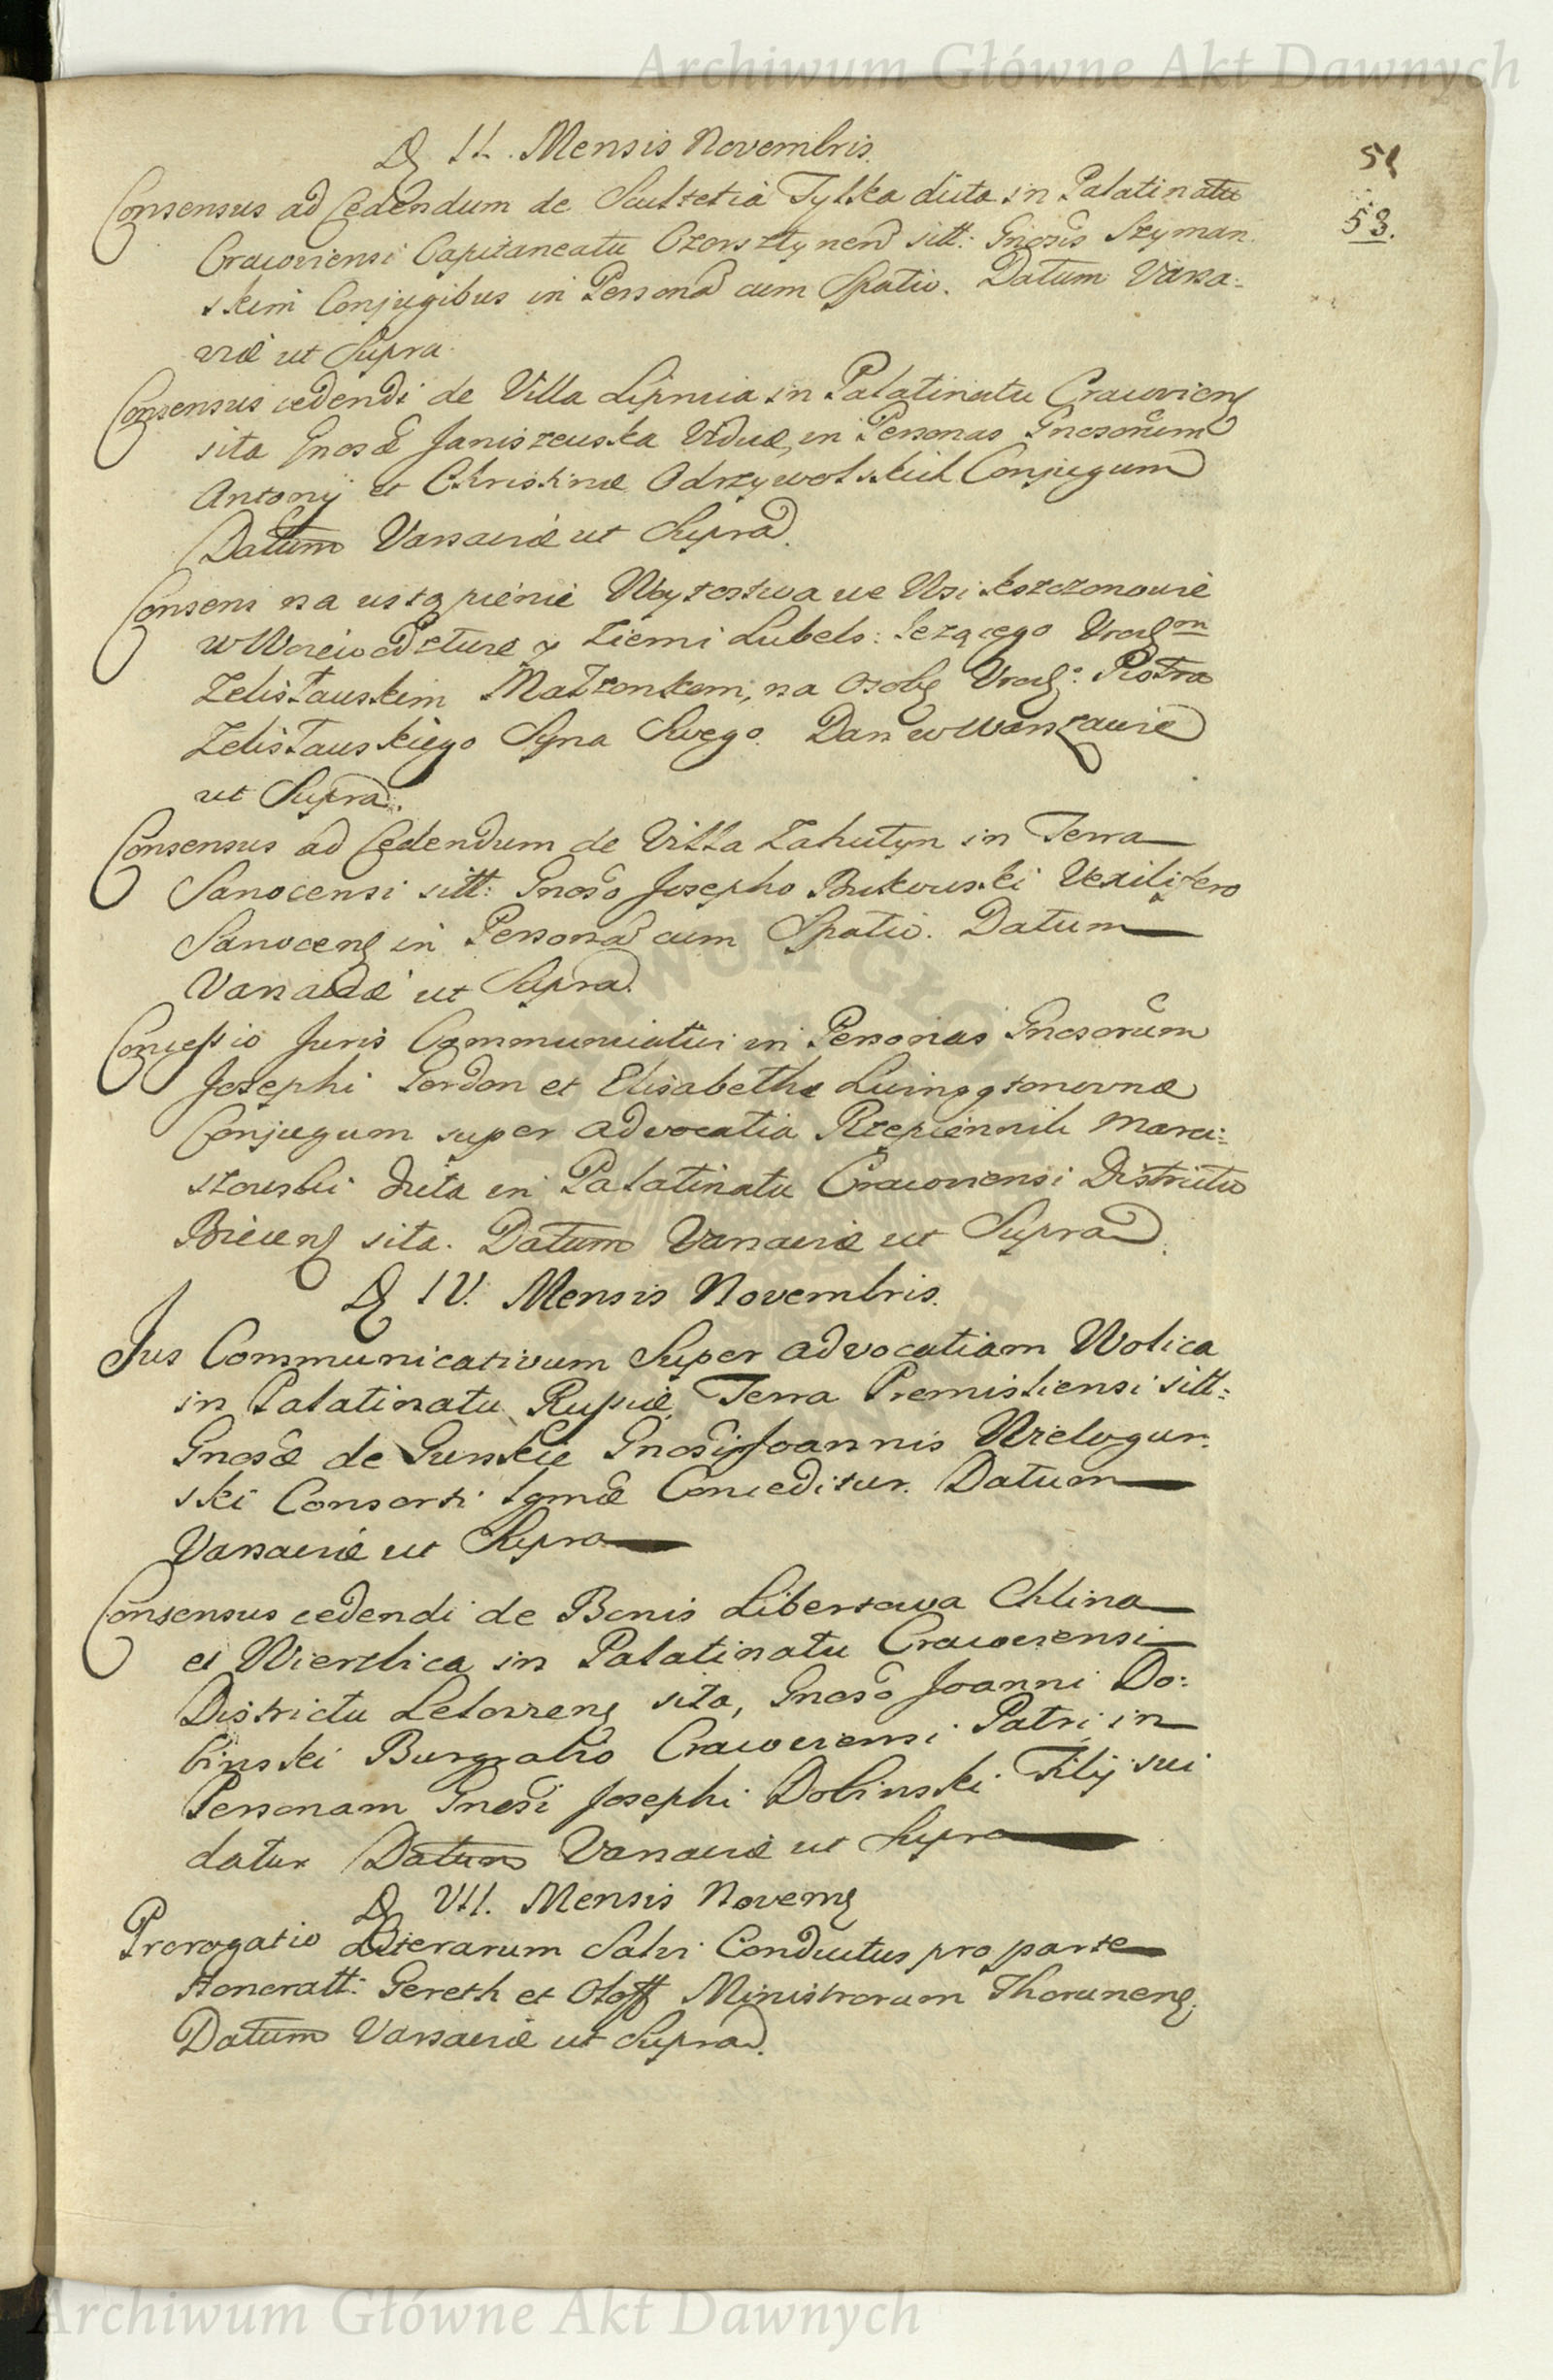 Archiwum Główne Akt Dawnych
D. II. Mensis Novembris.
51
53.
Consensus ad Cedendum de Scultetia Tylka dicta in Palatinatu
Cracoviensi Capitaneatu Czorsztynen sitt: Gnosis Szyman
skim Conjugibus in Persona cum Spatio. Datum Varsa=
viæ ut Supra.
Consensus cedendi de Villa Lipnica in Palatinatu Cracovien
sita Gnosæ Janiszewska Viduæ, in Personas Gnosorum
Antonij et Christinæ Odrzywolskich Conjugum
Datum Varsaviæ ut Supra.
Consens na ustąpienie Woytostwa we Wsi Koszczonowie
w Woiewodztwie y Ziemi Lubels: lezącego Urodzom
Zelisławskim Małzonkom, na Osobę Urodz: Piotra
Zelisławskiego Syna Swego. Dan w Warszawie
ut Supra.
Consensus ad Cedendum de Villa Zahutyn in Terra
Sanocensi sitt: Gnoso Josepho Bukowski Vexilifero
Sanocen in Persona cum Spatio. Datum
Varsaviæ ut Supra.
Concessio Juris Communicativi in Personas Gnosorum
Josephi Gordon et Elisabethæ Livingstonownæ
Conjugum super advocatia Rzepiennik Marci=
szowski dicta in Palatinatu Cracoviensi Districtu
Biecen sita. Datum Varsaviæ ut Supra.
D. IV. Mensis Novembris.
Jus Communicativum Super advocatiam Wolica
in Palatinatu Russiæ, Terra Premisliensi sitt:
Gnosæ de Gurskie Gnosi Joannis Wielogur
ski Consorti Conceditur. Datum
Varsaviæ ut Supra
Consensus cedendi de Bonis Libertowa Chlina
et Wierzbica in Palatinatu Cracoviensi
Districtu Lelovien sita, Gnoso Joanni Do:
binski Burgrabio Cracoviensi Patri in
Personam Gnosi Josephi Dobinski Filij sui
datur Datum Varsaviæ ut Supra
D. VII. Mensis Novem
Prorogatio Literarum Salvi Conductus pro parte
Honoratt: Gereth et Oloff Ministrorum Thorunen
Datum Varsaviæ ut Supra.
Archiwum Główne Akt Dawnych